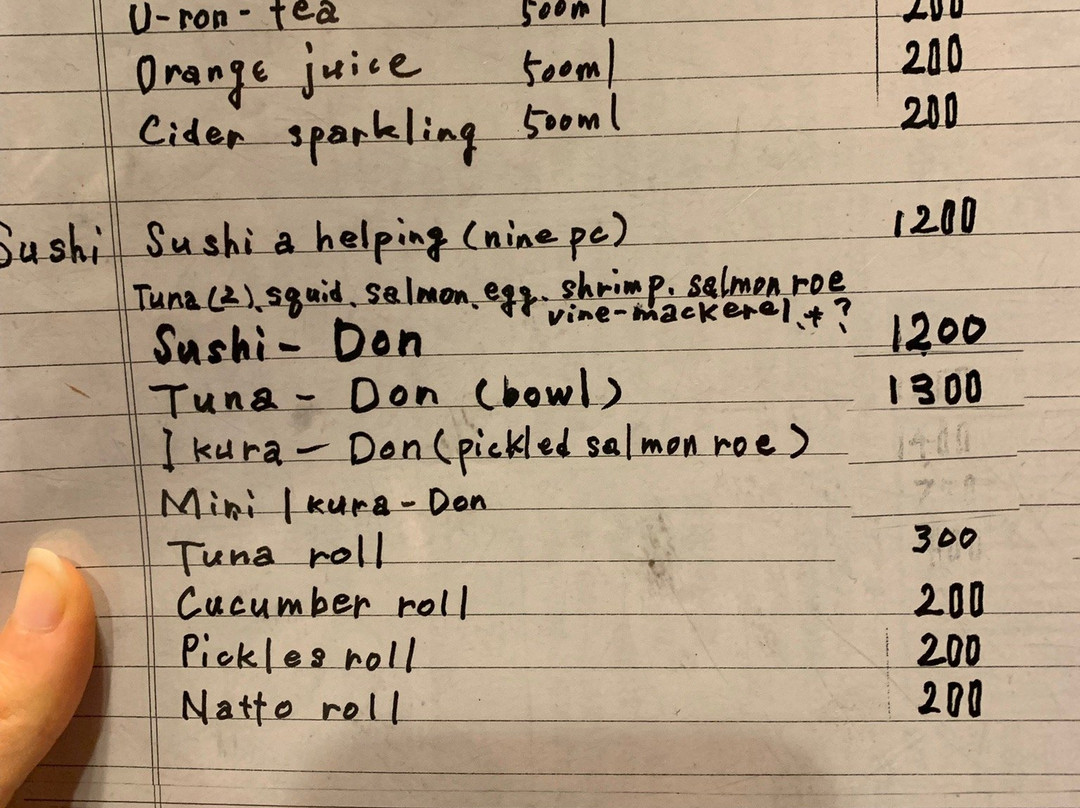 U-ron-tea 500ml 200
Orange juice 500ml 200
Cider sparkling 500ml 200
Sushi Sushi a helping (nine pc) 1200
Tuna(2). squid. salmon. egg. shrimp. salmon roe
vine-mackerel. + ?
Sushi- Don 1200
Tuna - Don (bowl) 1300
Ikura - Don (pickled salmon roe)
Mini Ikura-Don
Tuna roll 300
Cucumber roll 200
Pickles roll 200
Natto roll 200